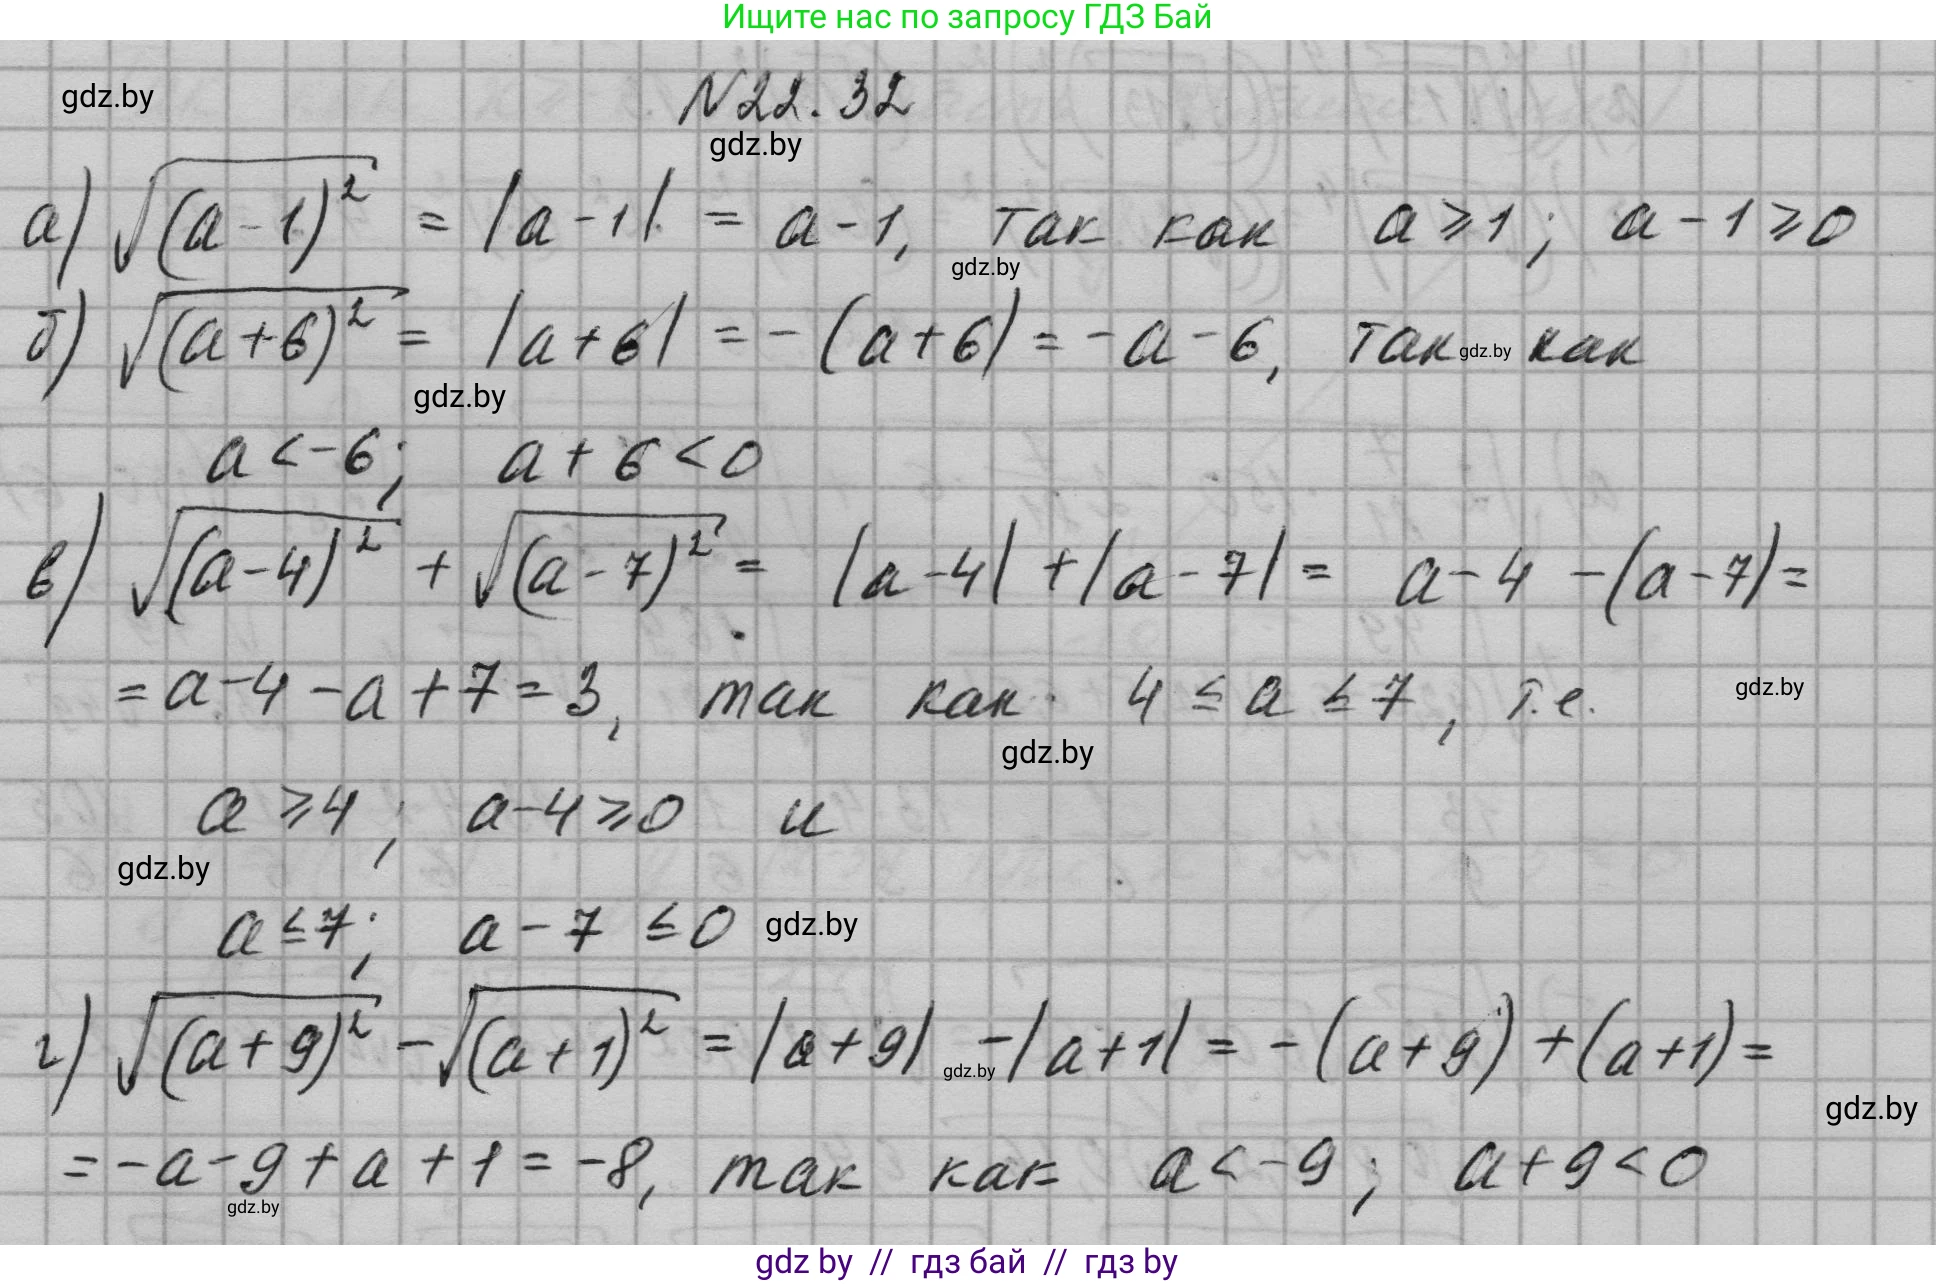 Ищите нас по запросу ГДЗ Бай
gdz.by
N22.32
gdz.by
а) √(a-1)² = |a-1| = a-1, так как a⩾1; a-1⩾0
gdz.by
б) √(a+6)² = |a+6| = -(a+6) = -a-6, так gdz.by как
gdz.by
a<-6; a+6<0
в) √(a-4)² + √(a-7)² = |a-4| + |a-7| = a-4 -(a-7)=
=a-4-a+7=3, так как 4≤a≤7, т.е.
gdz.by
gdz.by
a⩾4; a-4⩾0 и
gdz.by
a≤7; a-7≤0 gdz.by
г) √(a+9)² - √(a+1)² = |a+9| gdz.by -|a+1| = -(a+9)+(a+1)=
gdz.by
=-a-9+a+1=-8, так как a<-9; a+9<0
gdz.by
gdz by // гдз бай // гдз by